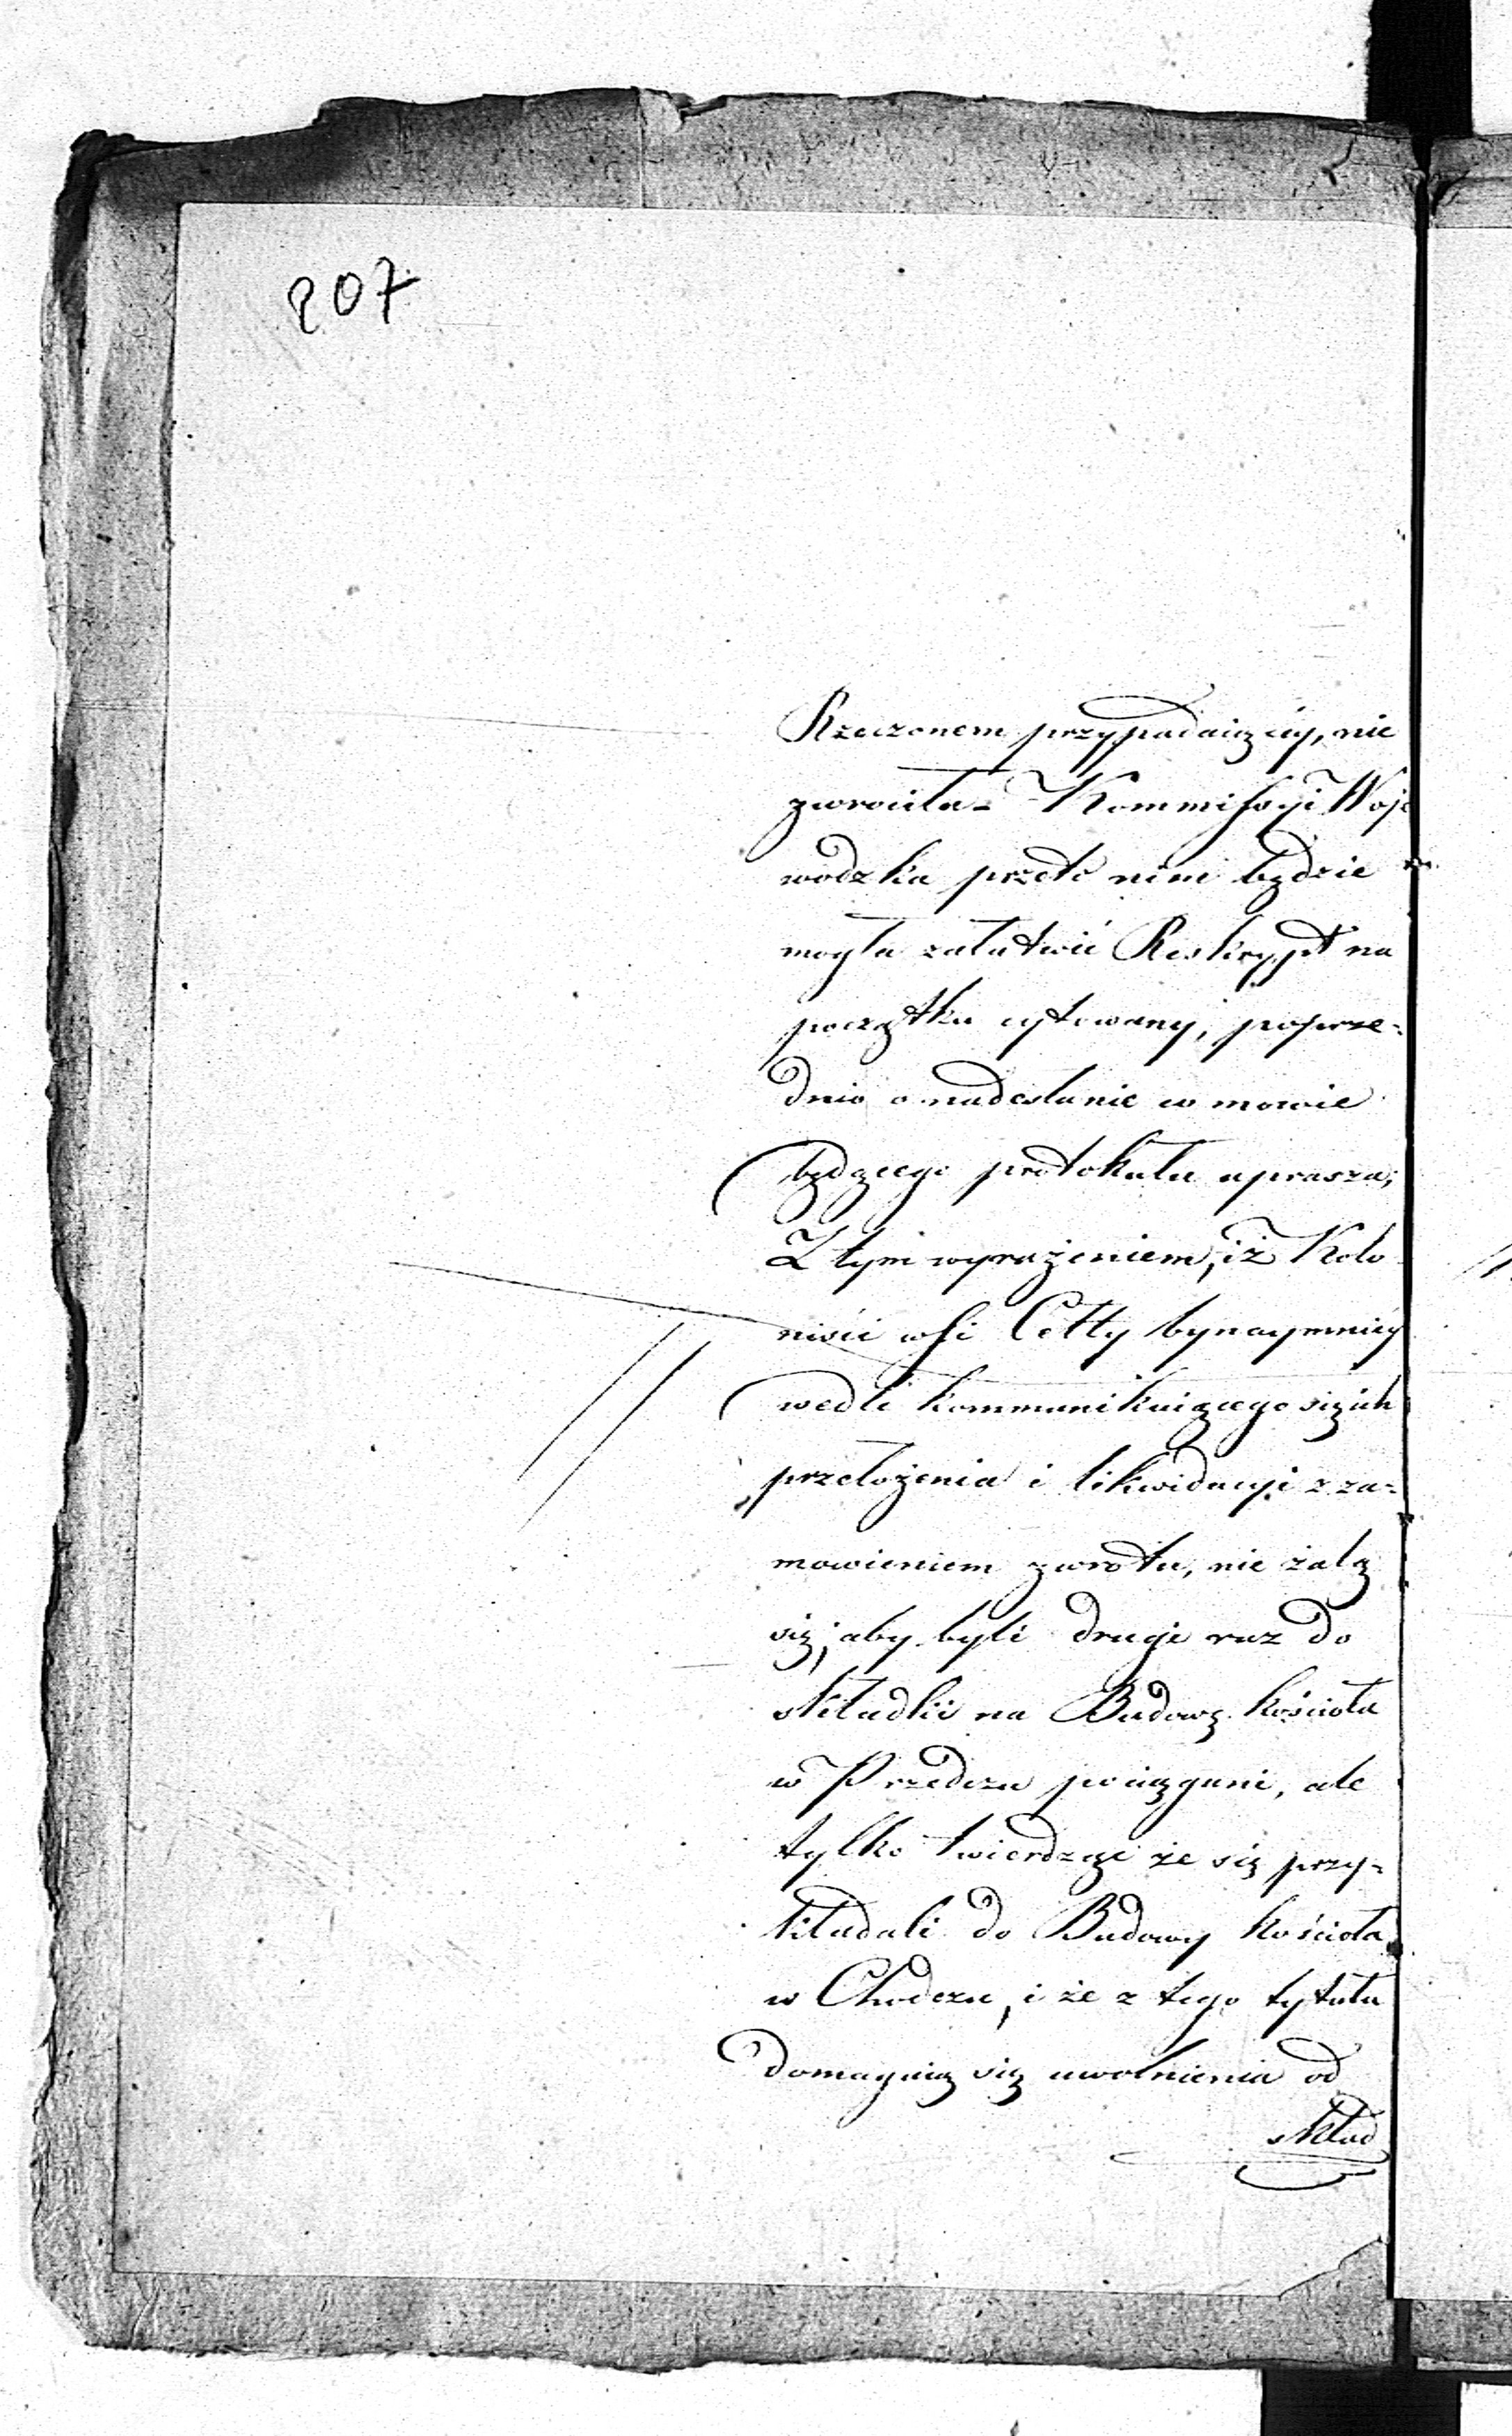 207
Rzeczonem przypadaiącéy, nie
zwróciła - Kommissyi Woje
wodzka przeto nim będzie
mogła załatwić Reskrypt na
początku cytowany, poprze-
dnio o nadesłanie w mowie
będącego protokułu uprasza;
Z tym wyrażeniem, iż Kolo
niści wsi Cetty bynaymniéy
wedle kommunikuiącego się ich
przełożenia i likwidacyi z za-
mowieniem zwrotu, nie żalą
się, aby byli drugi raz do
składki na Budowę kościoła
w Przedczu pociągani, ale
tylko twierdząc że się przy-
kładali do Budowy kościoła
w Chodczu, i że z tego tytułu
domagaią się uwolnienia od
skład